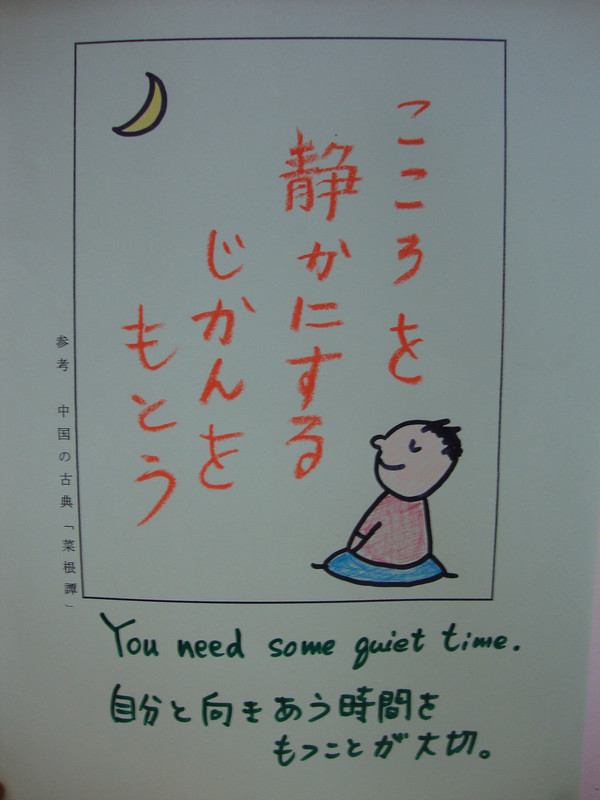 こころを
静かにする
じかんを
もとう
参考　中国の古典「菜根譚」
You need some quiet time.
自分と向きあう時間を
もつことが大切。